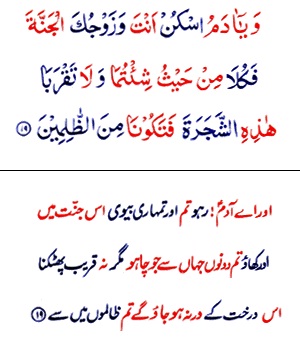 وَ يٰۤاٰدَمُ اسْكُنْ اَنْتَ وَ زَوْجُكَ الْجَنَّةَ
فَكُلَا مِنْ حَيْثُ شِئْتُمَا وَ لَا تَقْرَبَا
هٰذِهِ الشَّجَرَةَ فَتَكُوْنَا مِنَ الظّٰلِمِيْنَ ﴿۱۹﴾
اور اے آدمؑ! رہو تم اور تمہاری بیوی اس جنّت میں
اور کھاؤ تم دونوں جہاں سے جو چاہو مگر نہ قریب پھٹکنا
اس درخت کے ورنہ ہو جاؤ گے تم ظالموں میں سے ﴿۱۹﴾